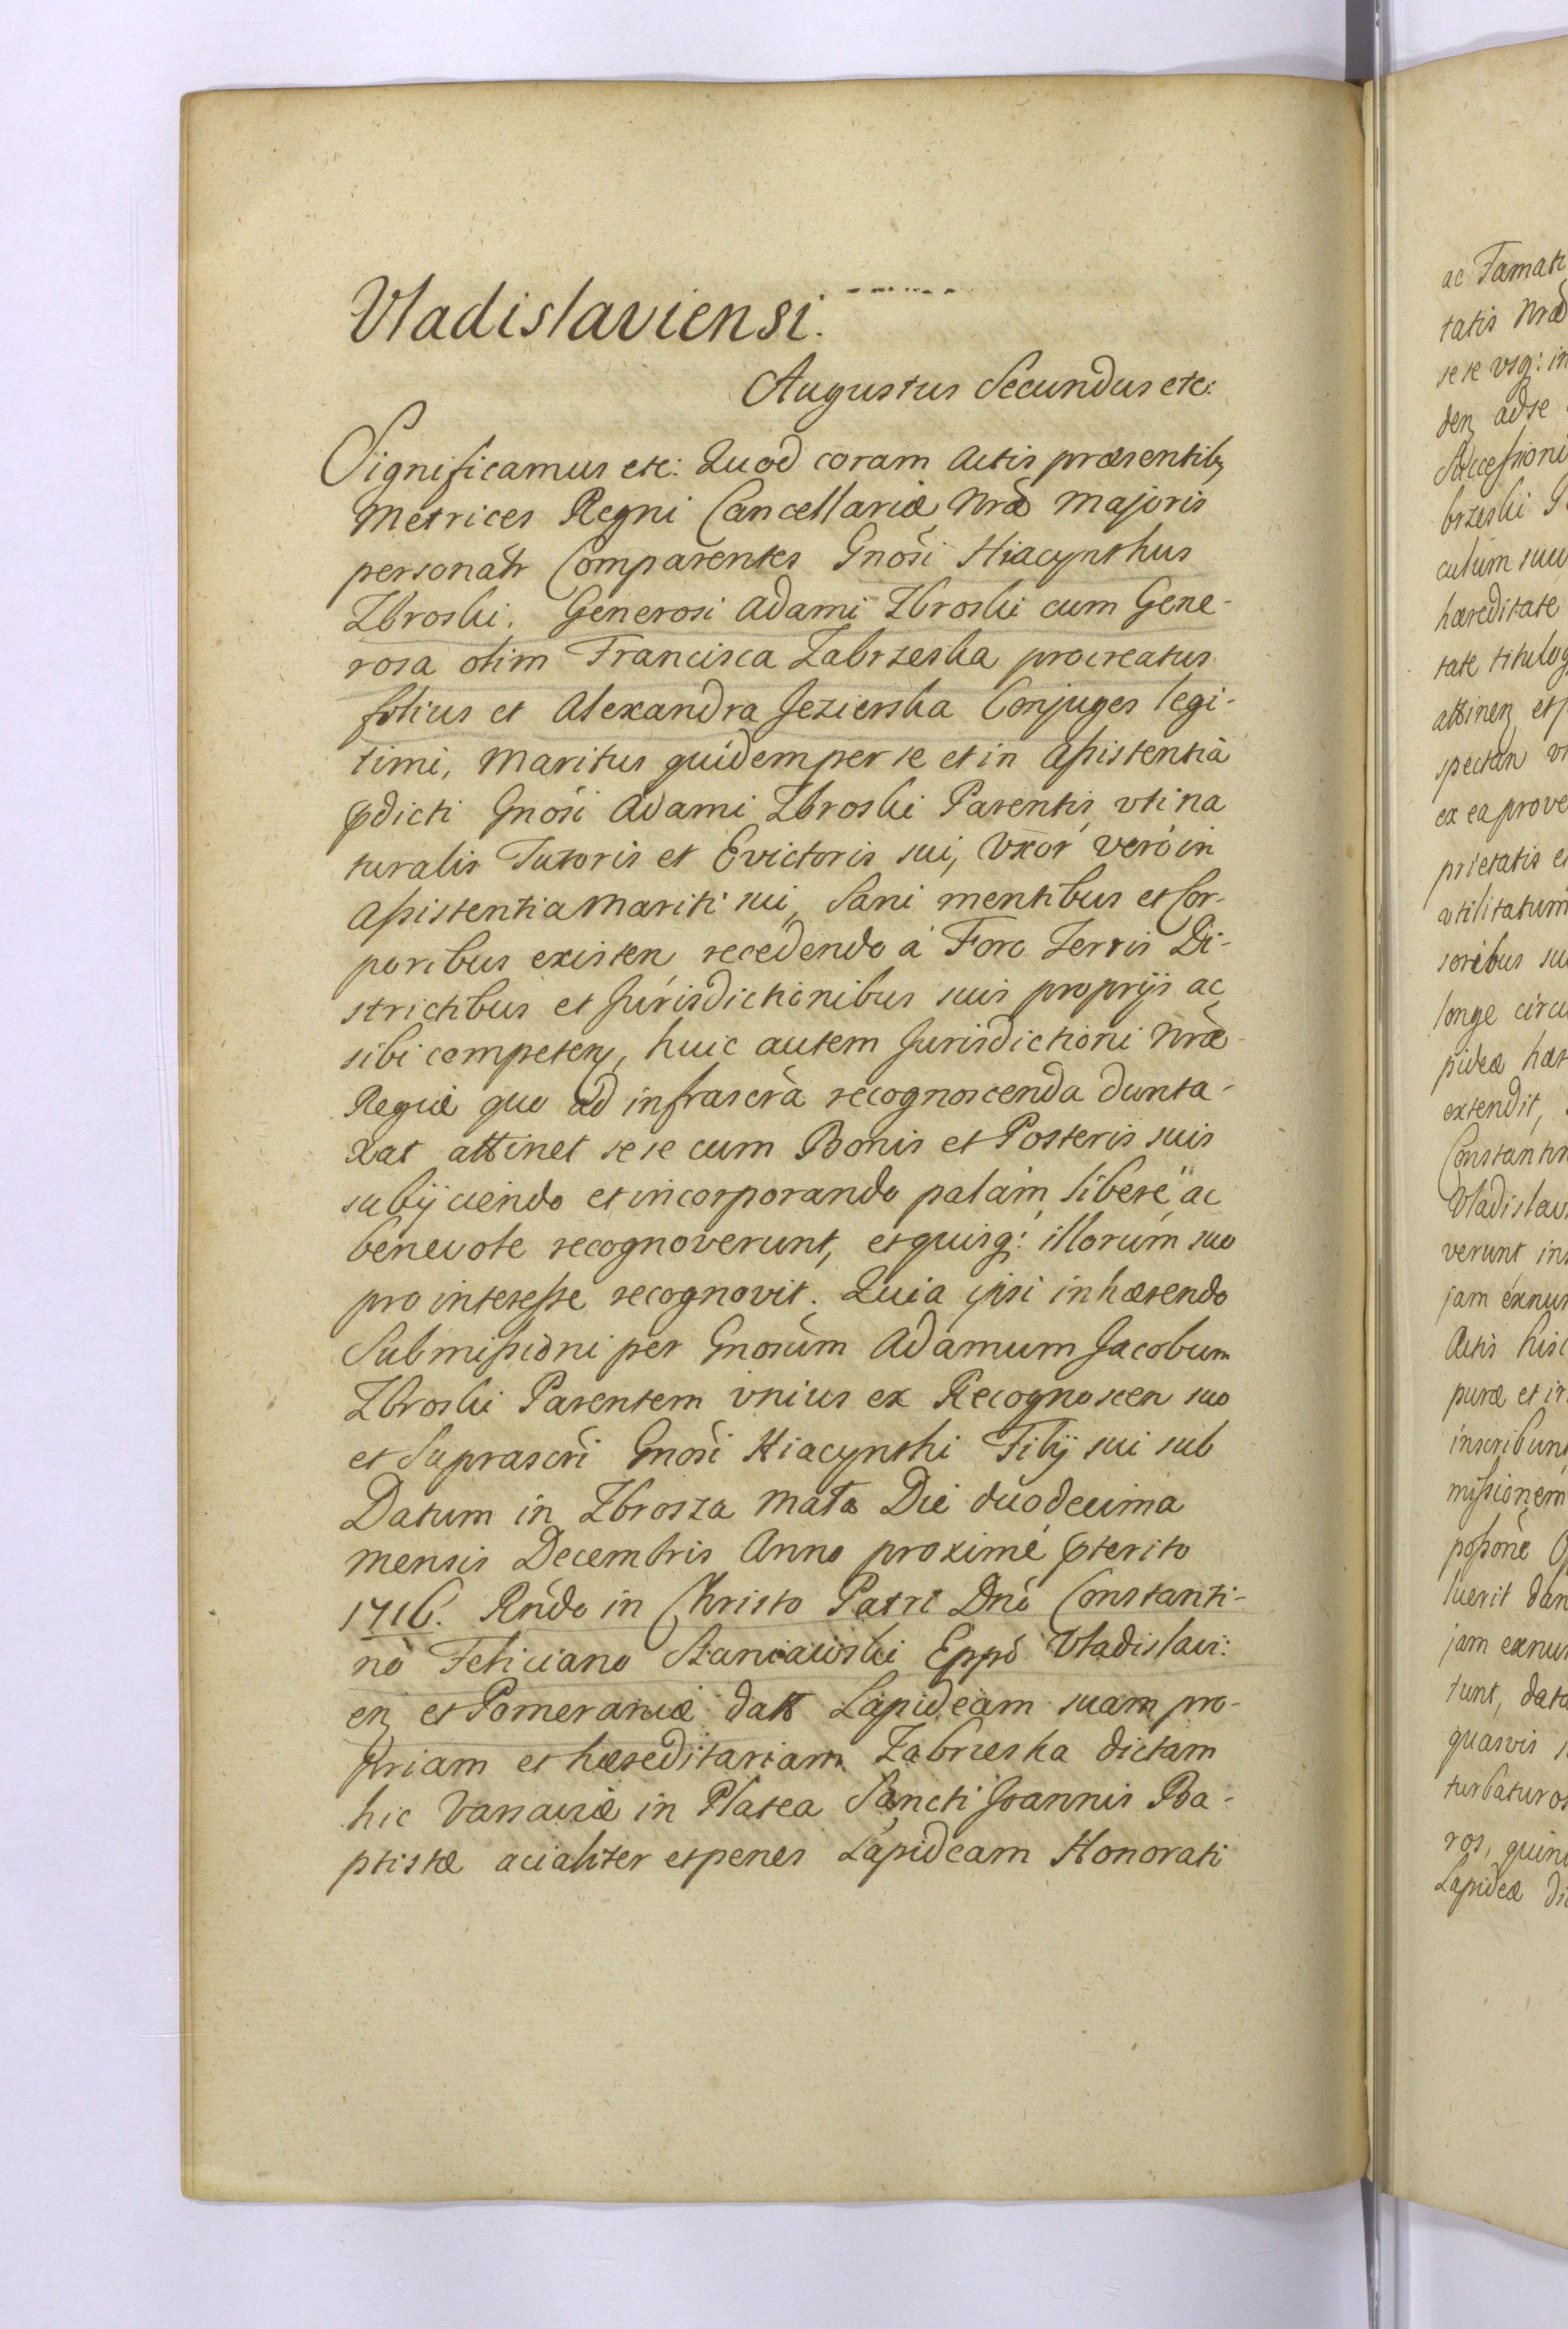 Vladislaviensi.
Augustus Secundus etc:
Significamus etc: Quod coram Actis præsentibq
Metrices Regni Cancellariæ Nræ Majoris
personalr Comparentes Gnosi Hiacynthus
Zbroski. Generosi Adami Zbroski cum Gene-
rosa olim Francisca Zabrzeska procreatus
filius et Alexandra Jezierska Conjuges legi-
timi, Maritus quidem per se et in Assistentiâ
pdicti Gnosi Adami Zbroski Parentis uti na
turalis Tutoris et Evictoris sui, Uxor verò in
Assistentia Mariti sui, Sani mentibus et Cor-
poribus existen, recedendo à Foro Terris Di-
strictibus et Jurisdictionibus suis proprijs ac
sibi competen, huic autem Jurisdictioni Nræ
Regiæ quo ad infrascrà recognoscenda dunta-
xat attinet sese cum Bonis et Posteris suis
subijciendo et incorporando palàm liberè ac
benevole recognoverunt, et quisq: illorum suo
pro interesse recognovit. Quia ipsi inhærendo
Submissioni per Gnosum Adamum Jacobum
Zbroski Parentem unius ex Recognoscen suo
et Suprascri Gnosi Hiacynthi Filij sui sub
Datum in Zbrosza Mała Die duodecima
mensis Decembris Anno proximè pterito
1716. Rndo in Christo Patri Dno Constanti-
no Feliciano Szaniawski Eppo Vladislavi:
en et Pomeraniæ datt Lapideam suam pro-
priam et hæreditariam Zabrzeska dictam
hic Varsaviæ in Platea Sancti Joannis Ba-
ptistæ acialiter et penes Lapideam Honorati
ac Famati
tatis Nræ
sese usq: in
den adse
Successioni
brzeski
culum suu
hæreditate
tate titulo
attinen et
spectan
ex ea prove
prietatis
utilitatum
soribus su
longe circu
pideæ
extendit,
Constantin
Vladislav
verunt ins
jam exnun
Actis hisc
puræ et ir
inscribunt
missionem
possone
luerit dan
jam exnun
tunt, data
quasvis
turbaturos
ros, quin
Lapideæ